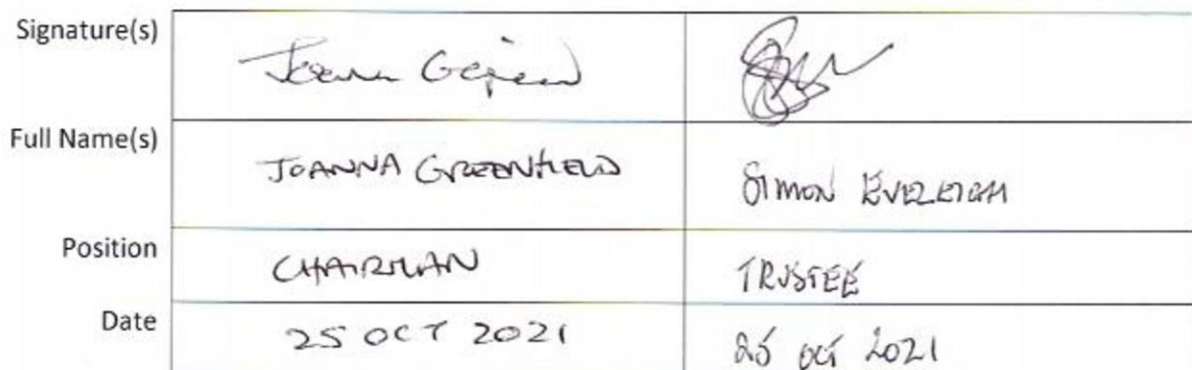 Signature(s)
Full Name(s) JOANNA GREENFIELD SIMON EVELEIGH
Position CHAIRMAN TRUSTEE
Date 25 OCT 2021 25 OCT 2021